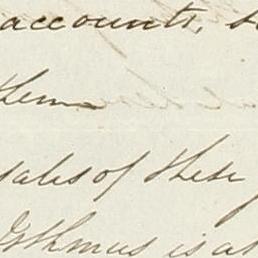 accounts, s
them
sales of these
Isthmus is at